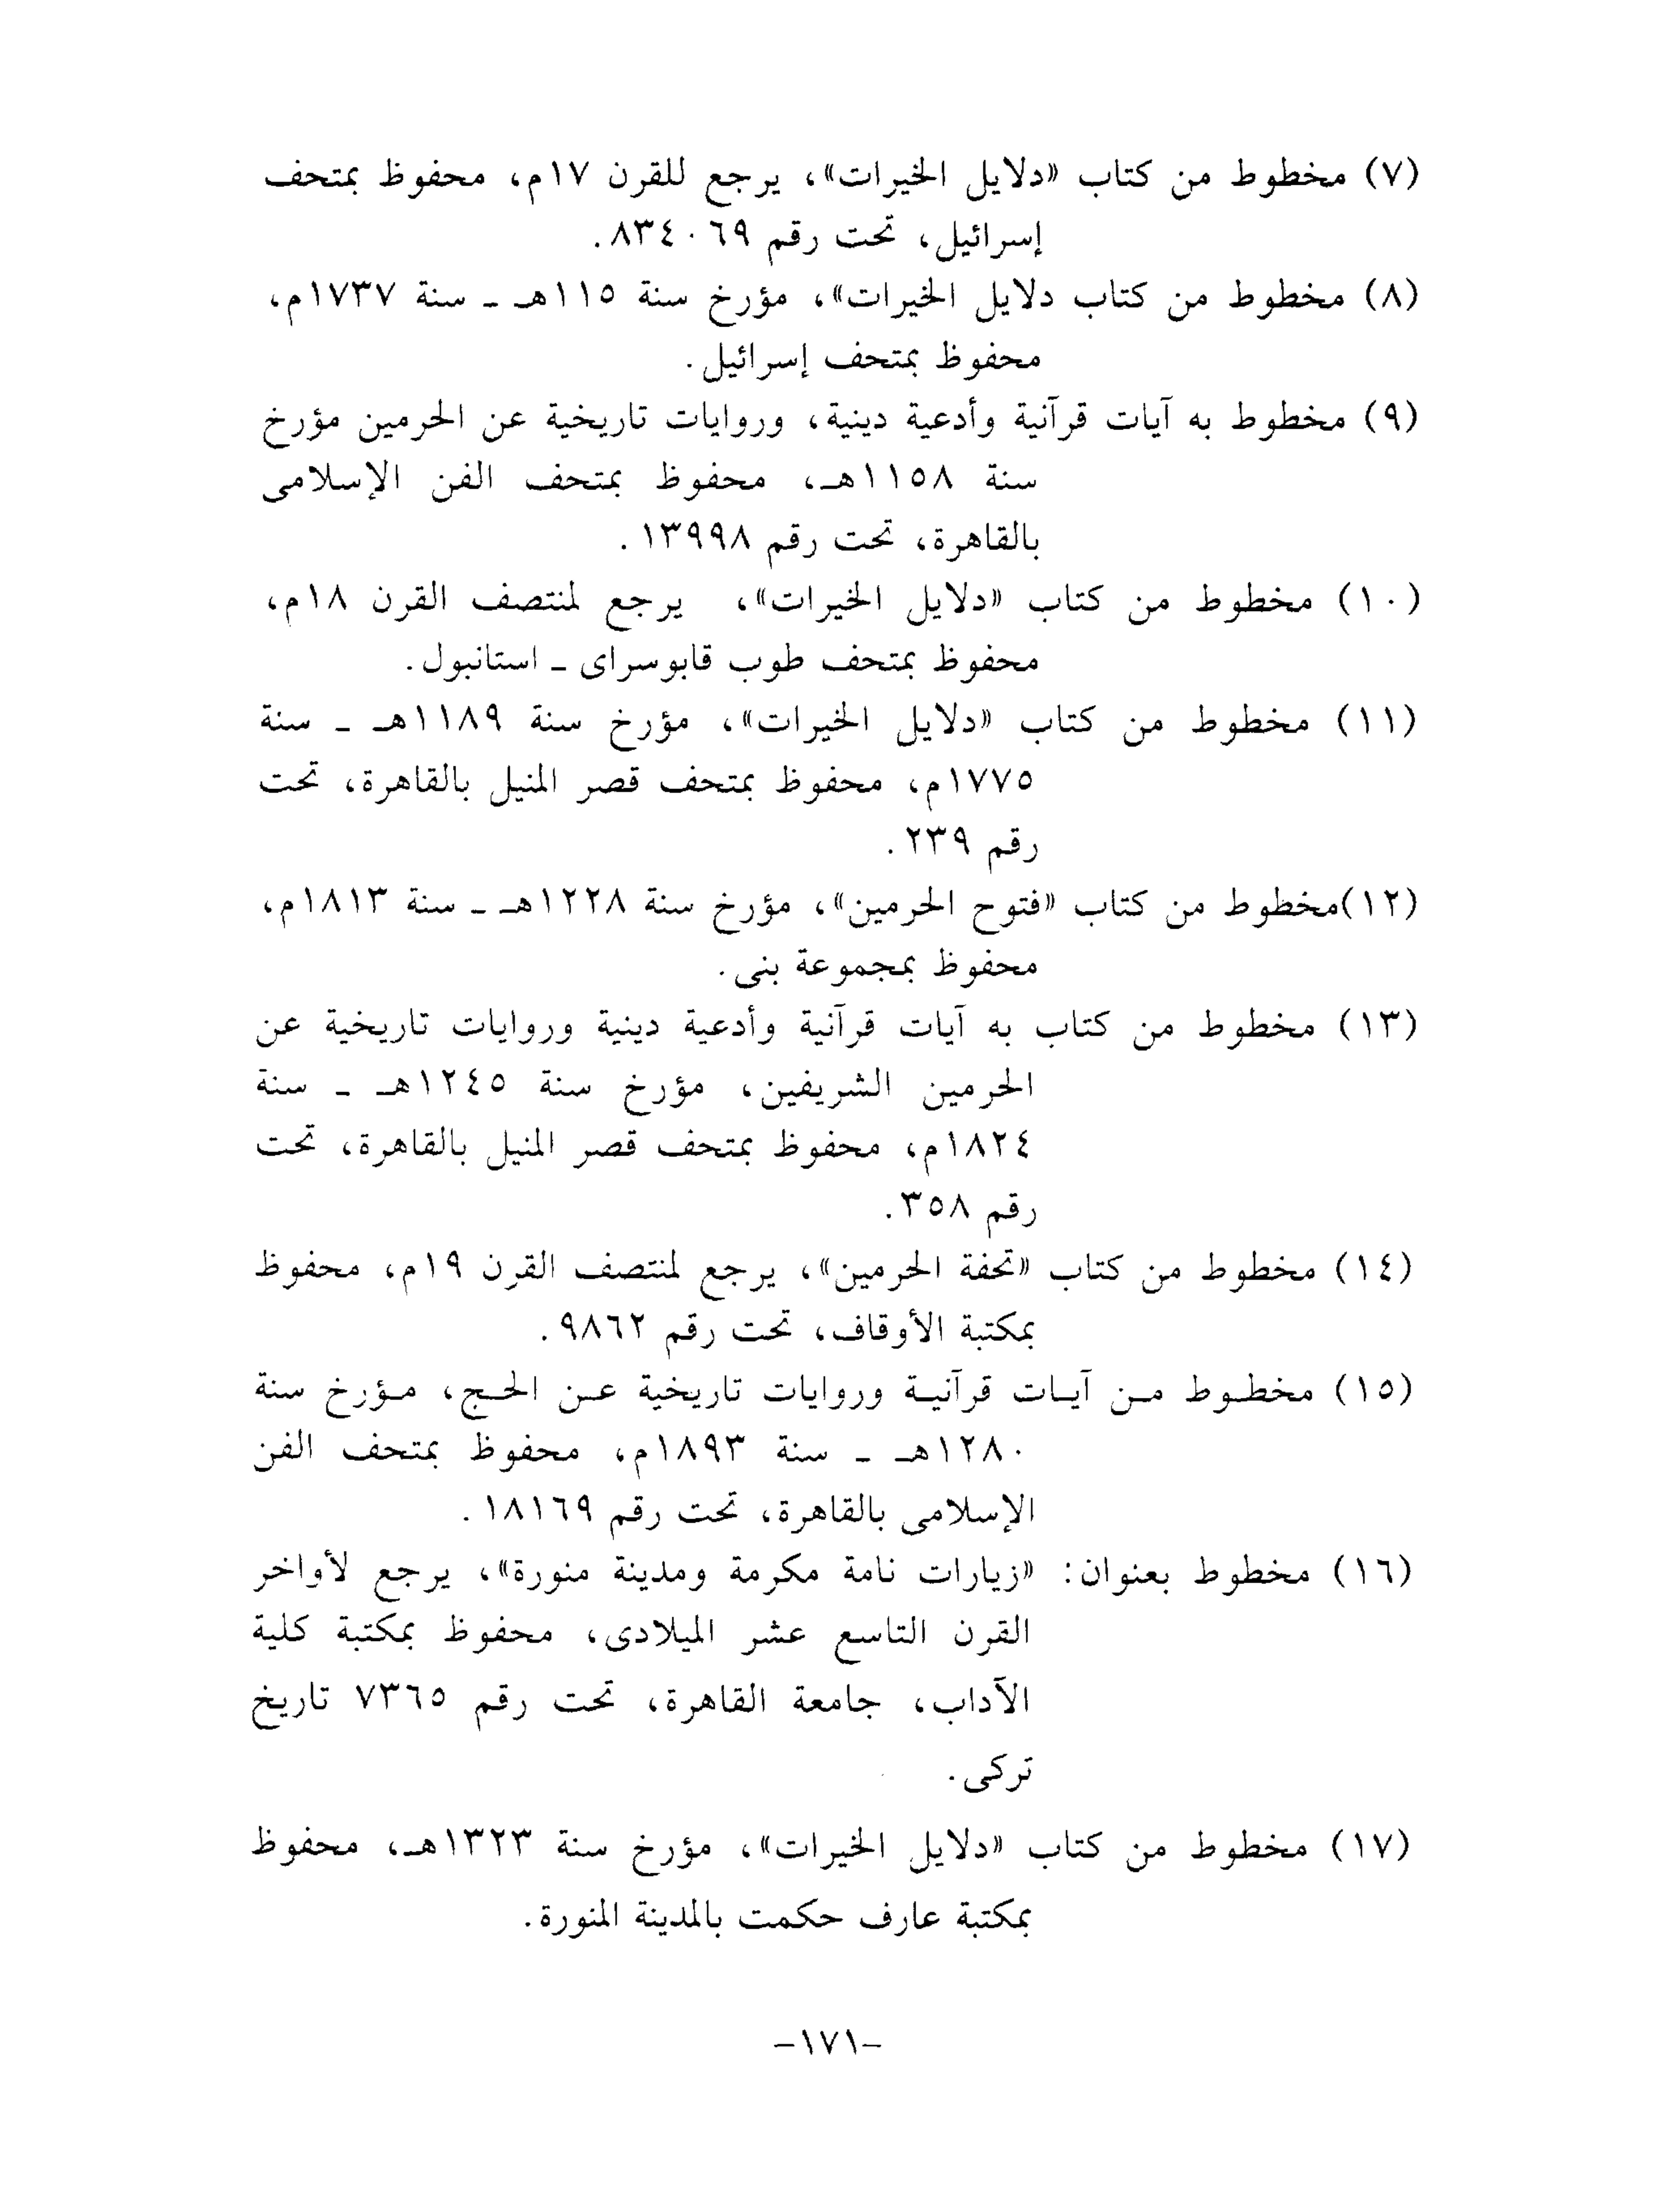 (٧) مخطوط من كتاب «دلايل الخيرات»، يرجع للقرن ١٧م، محفوظ بمتحف
إسرائيل، تحت رقم ٨٣٤٠٦٩.
(٨) مخطوط من كتاب دلايل الخيرات»، مؤرخ سنة ١١٥هـ ـ سنة ١٧٣٧م،
محفوظ بمتحف إسرائيل.
(٩) مخطوط به آيات قرآنية وأدعية دينية، وروايات تاريخية عن الحرمين مؤرخ
سنة ١١٥٨هـ، محفوظ بمتحف الفن الإسلامى
بالقاهرة، تحت رقم ١٣٩٩٨.
(١٠) مخطوط من كتاب «دلايل الخيرات»، يرجع لمنتصف القرن ١٨م،
محفوظ بمتحف طوب قابوسراى ـ استانبول.
(١١) مخطوط من كتاب «دلايل الخيرات»، مؤرخ سنة ١١٨٩هـ ـ سنة
١٧٧٥م، محفوظ بمتحف قصر المنيل بالقاهرة، تحت
رقم ٢٣٩.
(١٢)مخطوط من كتاب «فتوح الحرمين»، مؤرخ سنة ١٢٢٨هـ ـ سنة ١٨١٣م،
محفوظ بمجموعة بنى.
(١٣) مخطوط من كتاب به آيات قرآنية وأدعية دينية وروايات تاريخية عن
الحرمين الشريفين، مؤرخ سنة ١٢٤٥هـ ـ سنة
١٨٢٤م، محفوظ بمتحف قصر المنيل بالقاهرة، تحت
رقم ٣٥٨.
(١٤) مخطوط من كتاب «تحفة الحرمين»، يرجع لمنتصف القرن ١٩م، محفوظ
بمكتبة الأوقاف، تحت رقم ٩٨٦٢.
(١٥) مخطـوط مـن آيـات قرآنيـة وروايات تاريخية عـن الحـج، مـؤرخ سنة
١٢٨٠هـ ـ سنة ١٨٩٣م، محفوظ بمتحف الفن
الإسلامى بالقاهرة، تحت رقم ١٨١٦٩.
(١٦) مخطوط بعنوان: «زيارات نامة مكرمة ومدينة منورة»، يرجع لأواخر
القرن التاسع عشر الميلادى، محفوظ بمكتبة كلية
الآداب، جامعة القاهرة، تحت رقم ٧٣٦٥ تاريخ
تركى.
(١٧) مخطوط من كتاب «دلايل الخيرات»، مؤرخ سنة ١٣٢٣هـ، محفوظ
بمكتبة عارف حكمت بالمدينة المنورة.
–١٧١–